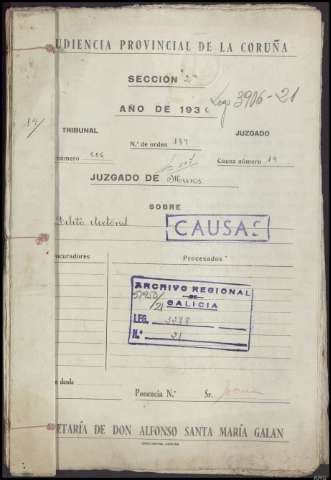 UDIENCIA PROVINCIAL DE LA CORUÑA
SECCIÓN 2ª
Leg 3906-21
AÑO DE 193
14/
TRIBUNAL
JUZGADO
N.º de orden 139
número 556
Causa número 14
JUZGADO DE Muros
SOBRE
Delito electoral
CAUSAS
curadores
Procesados
ARCHIVO REGIONAL
DE
GALICIA
/21
LEG.
N.º 21
e desde
Ponencia N.º
Sr.
ETARÍA DE DON ALFONSO SANTA MARÍA GALAN